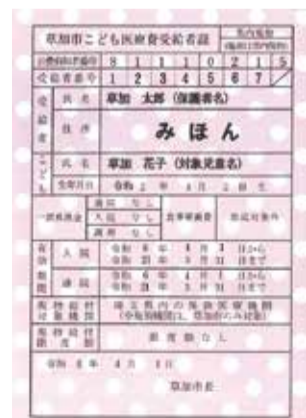 草加市こども医療費受給者証
県内現物
公費負担者番号 8 1 1 1 0 2 1 5
受給者番号 1 2 3 4 5 6 7
受給者
氏名 草加 太郎 (保護者名)
住所
みほん
こども
氏名 草加 花子 (対象児童名)
生年月日 令和 2 年 4月 2日 生
一部負担金
通院 なし
入院 なし
調剤 なし
食事療養費 助成対象外
有効期間
入院 令和 6 年 4月 1日から
令和 21 年 3月 31日まで
通院 令和 6 年 4月 1日から
令和 21 年 3月 31日まで
現物給付対象機関 埼玉県内の保険医療機関
現物給付限度額 限度額なし
令和 6 年 4月 1日
草加市長